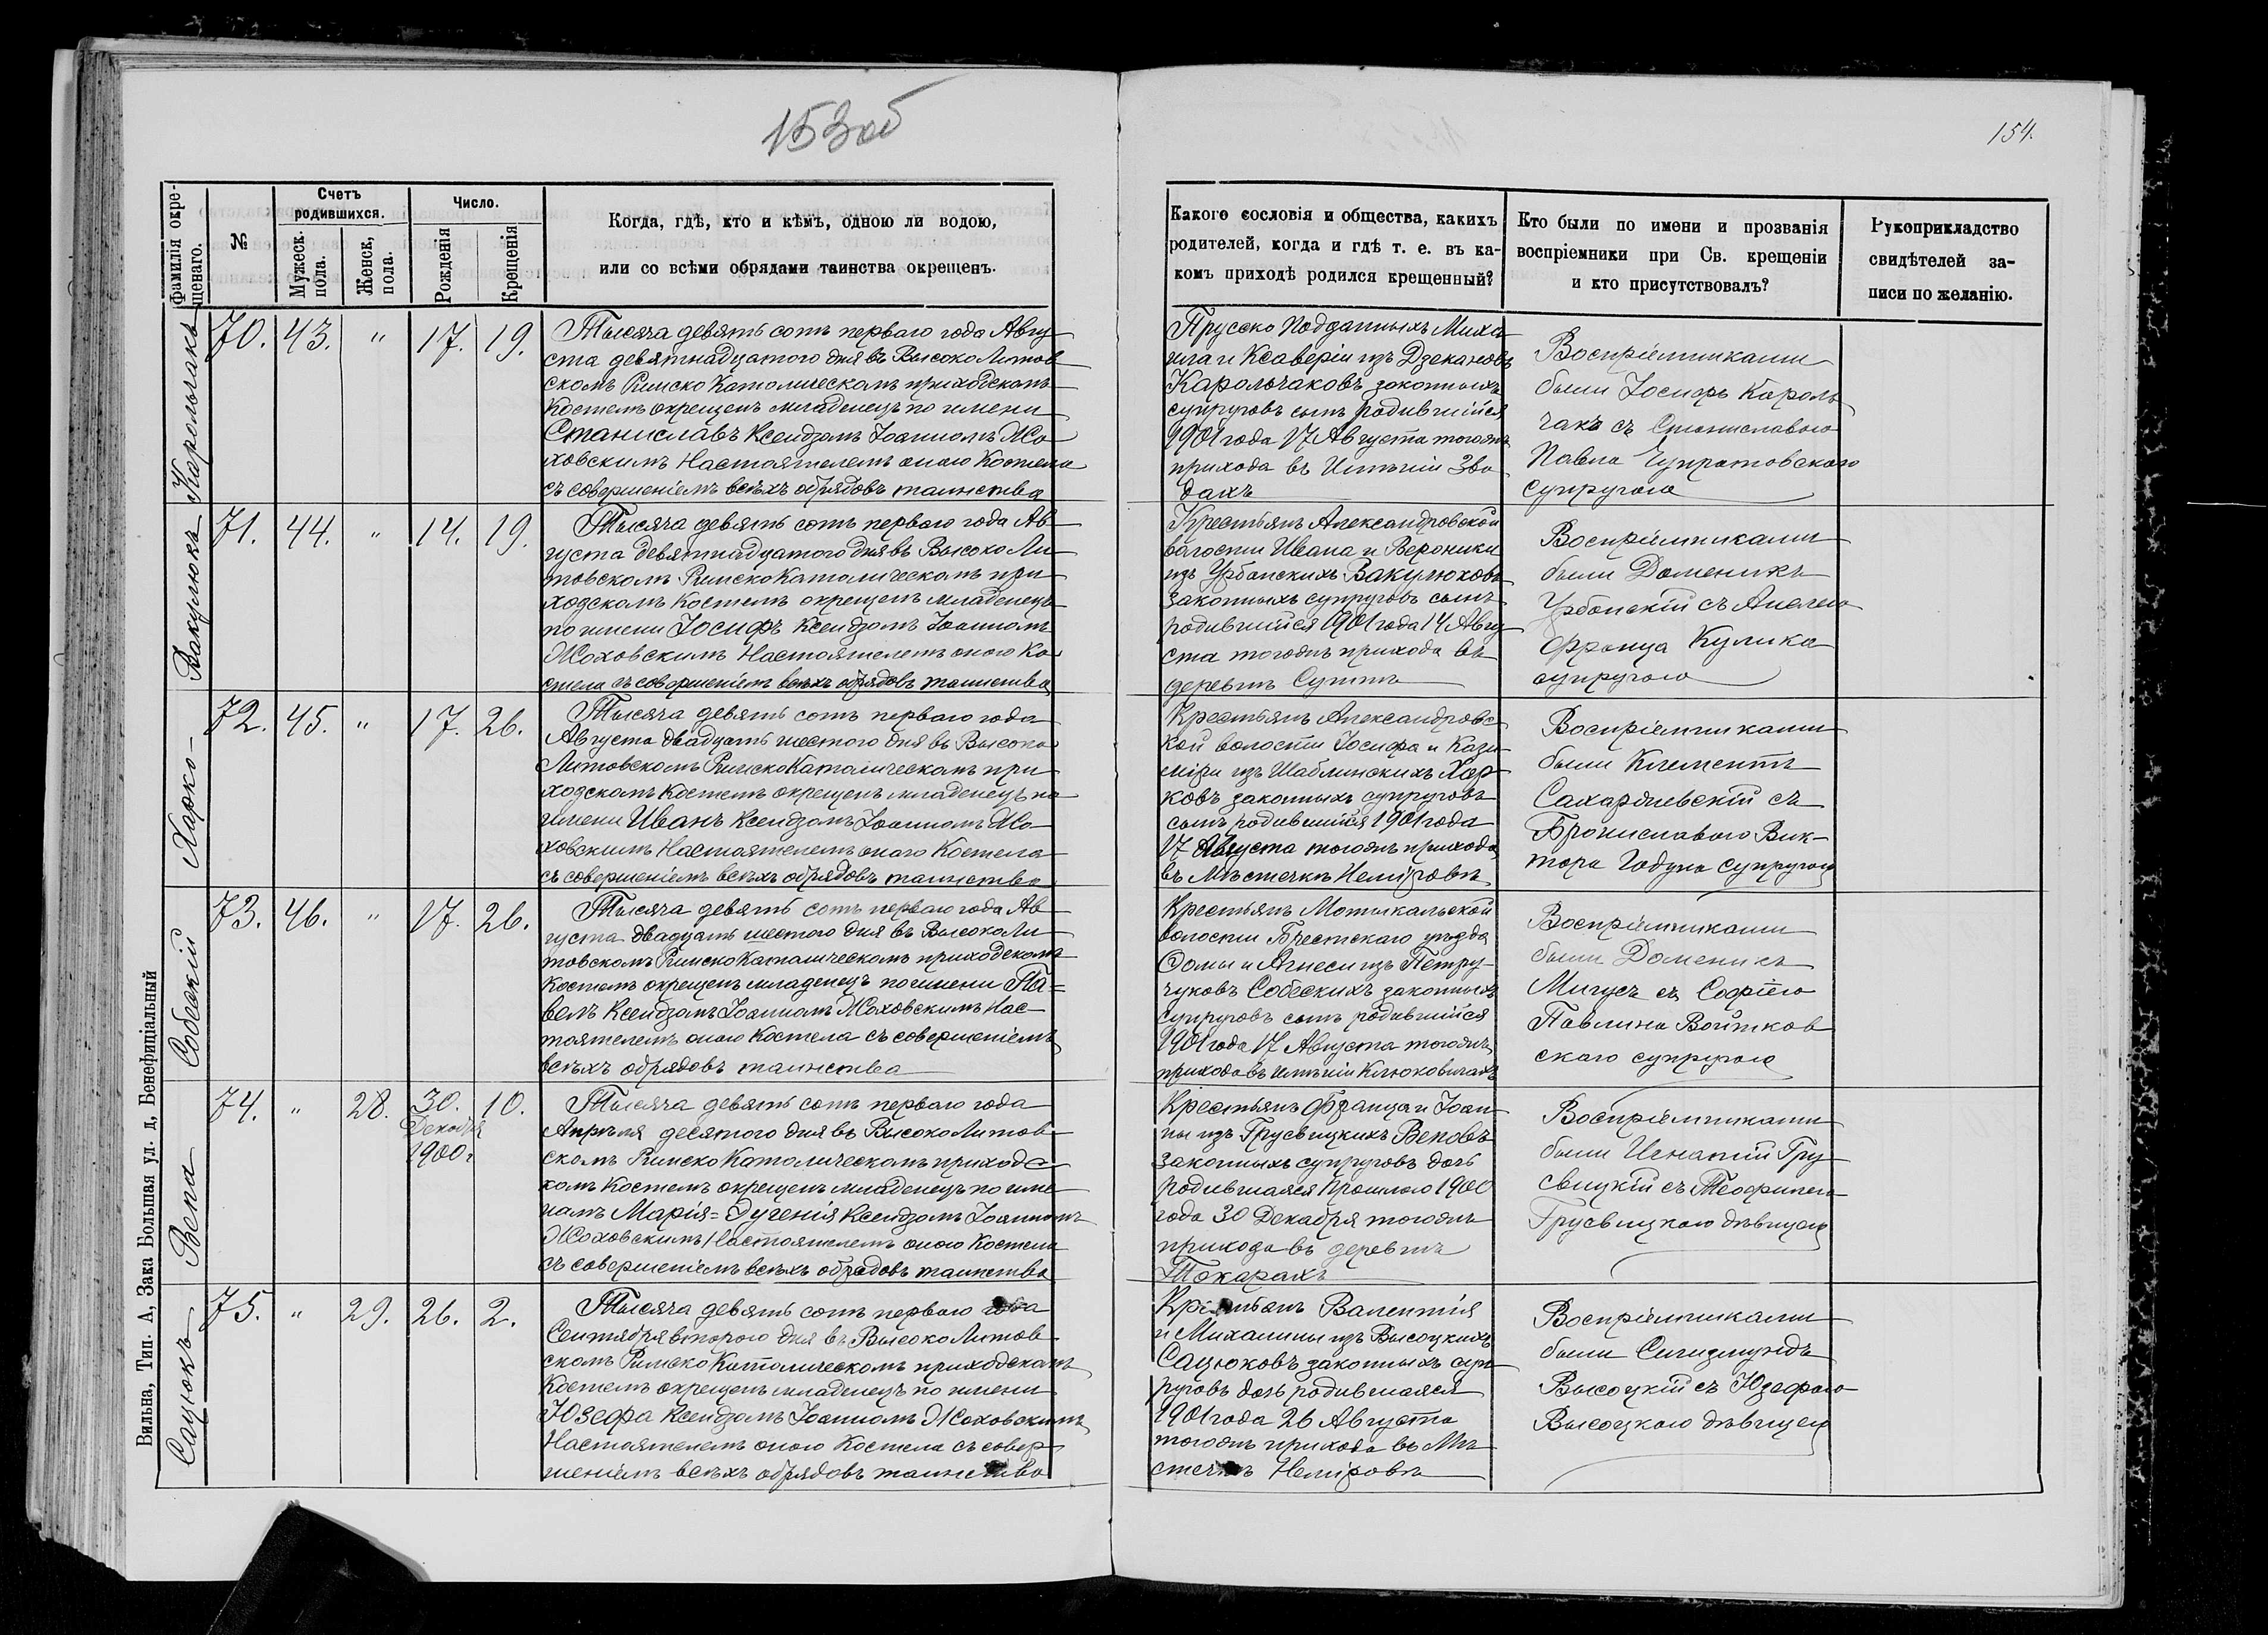 153об
154.
фамилія окре-
щеннаго.
№
Счетъ
родившихся.
Мужеск.
пола.
Женск,
пола.
Число.
Рожденія
Крещенія
Когда, гдѣ, кто и кѣмъ, одною ли водою,
или со всѣми обрядами таинства окрещенъ.
Какого сословія и общества, какихъ
родителей, когда и гдѣ т. е. въ ка-
комъ приходѣ родился крещенный?
Кто были по имени и прозванія
воспріемники при Св. крещеніи
и кто присутствовалъ?
Рукоприкладство
свидѣтелей за-
писи по желанію.
Карольчакъ
70. 43. " 17. 19.
Тысяча девять сотъ перваго года Авгу
ста девятнадцатого дня въ Высоко Литов
скомъ Римско Католическомъ приходскомъ
Костелѣ окрещенъ младенецъ по имени
Станиславъ Ксендзомъ Іоанномъ Жо
ховскимъ Настоятелемъ оного Костела
съ совершеніемъ всѣхъ обрядовъ таинства
Прусско Подданныхъ Миха
ила и Ксаверіи изъ
Карольчаковъ законныхъ
супруговъ сынъ родившійся
1901 года 17 Августа тогожъ
прихода въ Имѣніи Зво
дахъ
Воспріемниками
были Іосифъ Кароль
чакъ съ Станиславою
Павла
супругою
Вакулюкъ
71. 44. " 14. 19.
Тысяча девять сотъ перваго года Ав
густа девятнадцатого дня въ Высоко Ли
товскомъ Римско Католическомъ при
ходскомъ Костелѣ окрещенъ младенецъ
по имени Іосифъ Ксендзомъ Іоанномъ
Жоховскимъ Настоятелемъ оного Ко
стела съ совершеніемъ всѣхъ обрядовъ таинства
Крестьянъ Александровской
волости Ивана и Вероники
изъ Урбанскихъ Вакулюковъ
законныхъ супруговъ сынъ
родившійся 1901 года 14 Авгу
ста тогожъ прихода въ
деревнѣ
Воспріемниками
были Доменикъ
Урбанскій съ Анелею
Франца Кулика
супругою
Харко
72. 45. " 17. 26.
Тысяча девять сотъ перваго года
Августа двадцать шестого дня въ Высоко
Литовскомъ Римско Католическомъ при
ходскомъ Костелѣ окрещенъ младенецъ по
имени Иванъ Ксендзомъ Іоанномъ Жо
ховскимъ Настоятелемъ оного Костела
съ совершеніемъ всѣхъ обрядовъ таинства
Крестьянъ Александровс
кой волости Іосифа и Кази
міры изъ Шаблинскихъ Хар
ковъ законныхъ супруговъ
сынъ родившійся 1901 года
17 Августа тогожъ прихода
въ Мѣстечкѣ Немировѣ
Воспріемниками
были Климентъ
съ
Брониславою Вик-
тора Годуна супругою
Собескій
73. 46. " 17. 26.
Тысяча девять сотъ перваго года Ав
густа двадцать шестого дня въ Высоко Ли
товскомъ Римско Католическомъ приходскомъ
Костелѣ окрещенъ младенецъ по имени Па=
велъ Ксендзомъ Іоанномъ Жоховскимъ Нас-
тоятелемъ оного Костела съ совершеніемъ
всѣхъ обрядовъ таинства
Крестьянъ Мотыкальской
волости Брестскаго уѣзда
Ѳомы и Агнесы изъ Петру-
чуковъ Собескихъ законныхъ
супруговъ сынъ родившійся
1901 года 17 Августа тогожъ
прихода въ имѣніи Клюковичахъ
Воспріемниками
были Доменикъ
Мигусъ съ Софіею
Павлина Войтков
скаго супругою
Вепа
74. " 28. 30. 10.
Декабря
1900 г
Тысяча девять сотъ перваго года
Апрѣля десятого дня въ Высоко Литов
скомъ Римско Католическомъ приходс
комъ Костелѣ окрещенъ младенецъ по име
намъ Марія=Эугенія Ксендзомъ Іоанномъ
Жоховскимъ Настоятелемъ оного Костела
съ совершеніемъ всѣхъ обрядовъ таинства
Крестьянъ Франца и Іоан
ны изъ Грусвицкихъ Веповъ
законныхъ супруговъ дочь
родившаяся прошлого 1900
года 30 Декабря тогожъ
прихода въ деревнѣ
Токарахъ
Воспріемниками
были Игнатій Гру
свицкій съ Теофилею
Грусвицкою дѣвицею
Сацюкъ
75. " 29. 26. 2.
Тысяча девять сотъ перваго года
Сентября второго дня въ Высоко Литов
скомъ Римско Католическомъ приходскомъ
Костелѣ окрещенъ младенецъ по имени
Юзефа Ксендзомъ Іоанномъ Жоховскимъ
Настоятелемъ оного Костела съ совер
шеніемъ всѣхъ обрядовъ таинства
Крестьянъ Валентія
и Михалины изъ Высоцкихъ
Сацюковъ законныхъ суп
руговъ дочь родившаяся
1901 года 26 Августа
тогожъ прихода въ Мѣ
стечкѣ Немировѣ
Воспріемниками
были Сигизмундъ
Высоцкій съ Юзефою
Высоцкою дѣвицею
Вильна, Тип. А, Зака Большая ул. д, Бенефиціальный